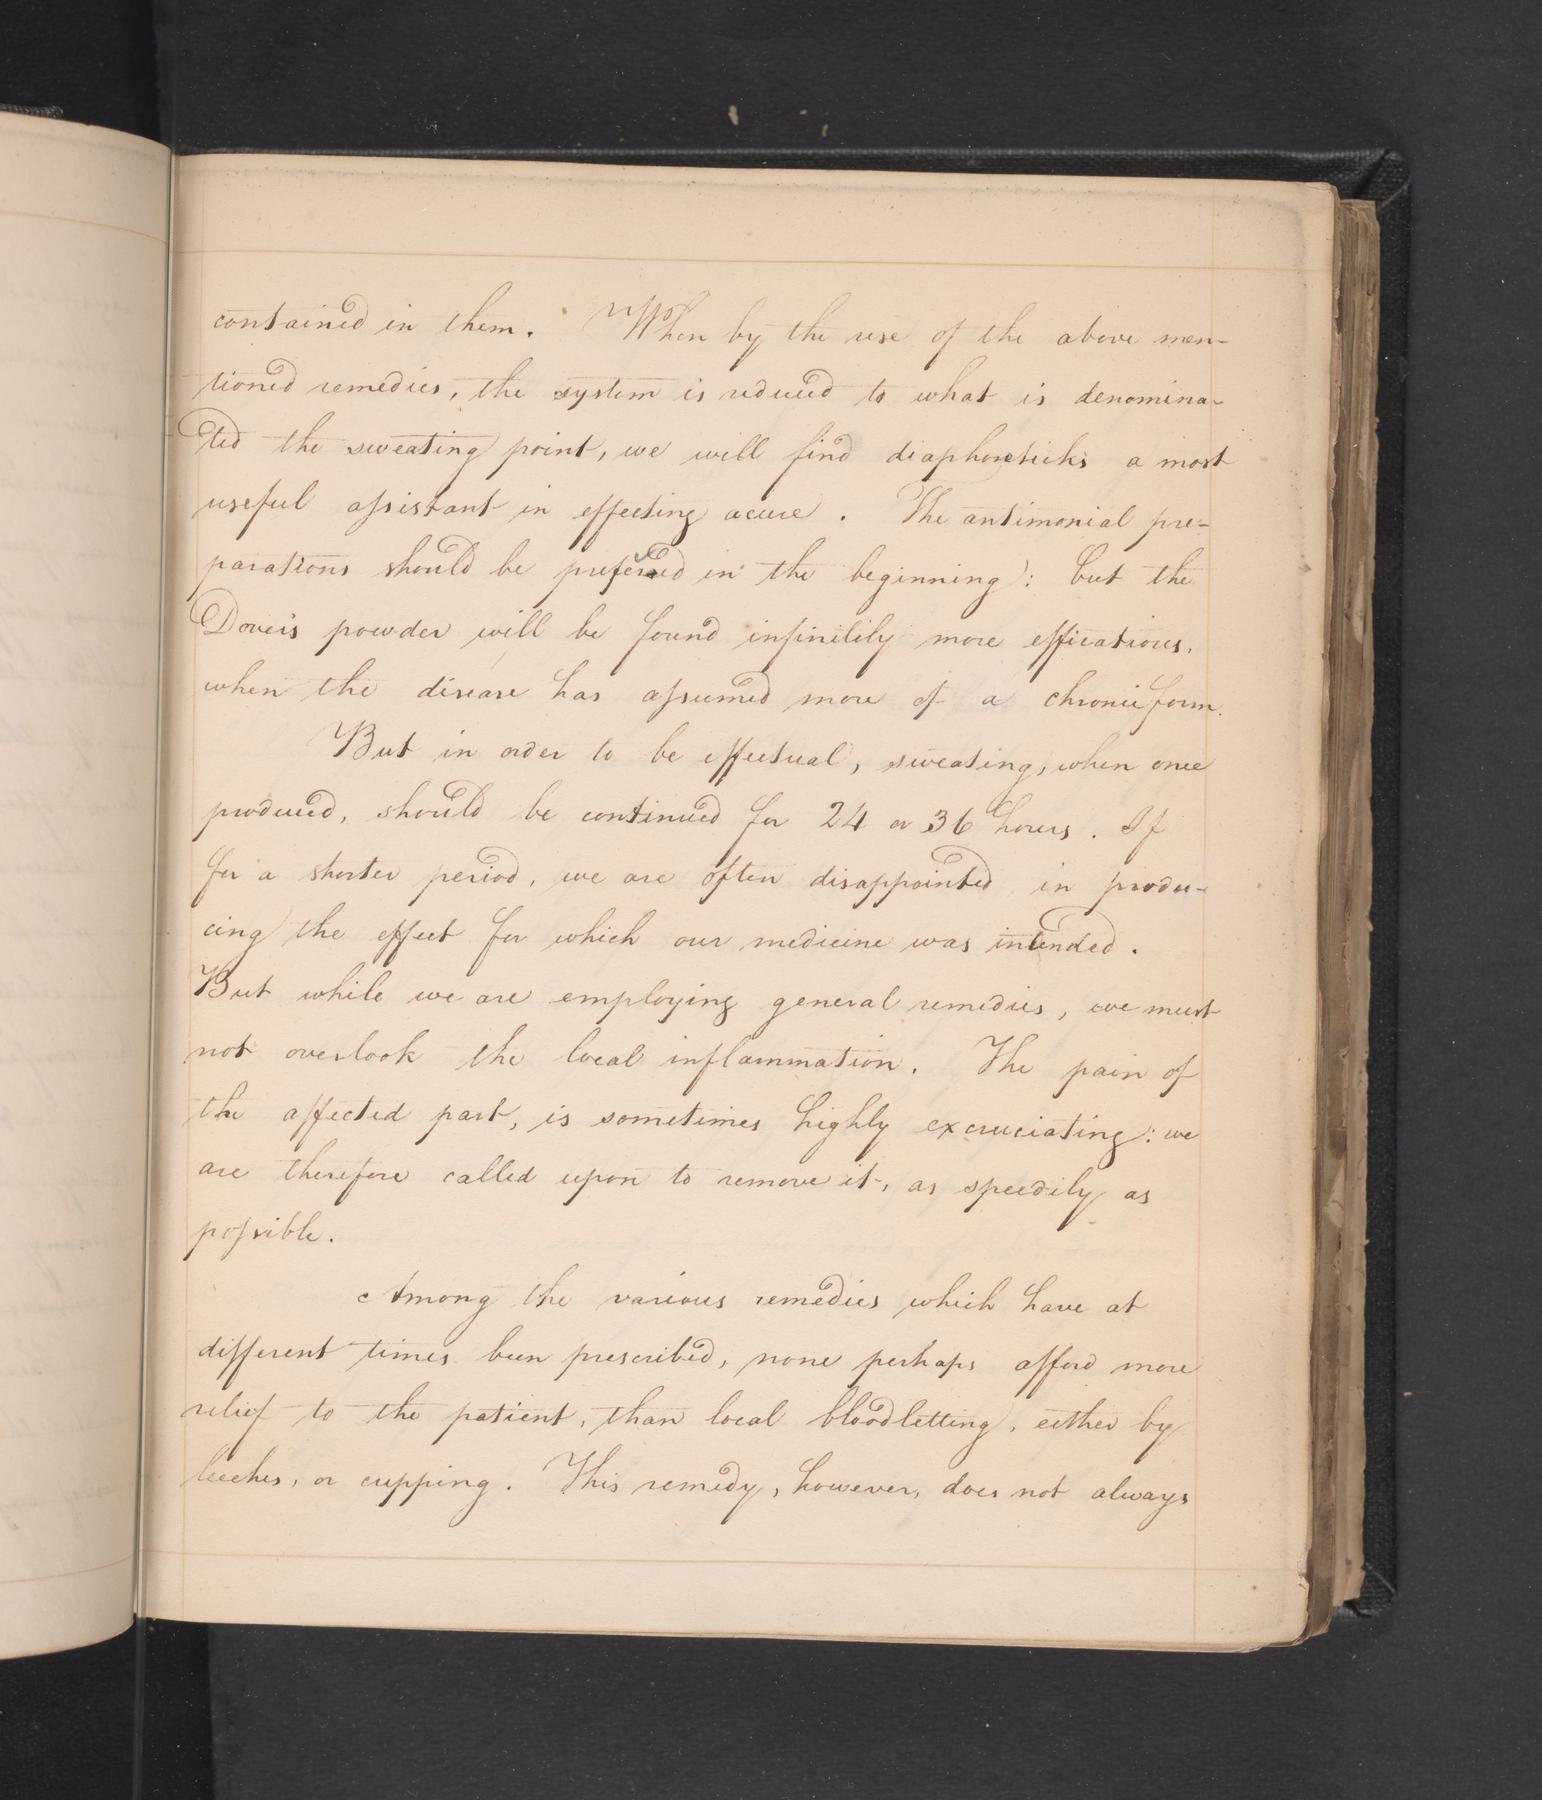 contained in them. When by the use of the above men-
tioned remedies, the system is reduced to what is denomina-
ted the sweating point, we will find diaphoreticks a most
useful assistant in effecting a cure. The antimonial pre-
parations should be prefered in the beginning: but the
Dover's powder will be found infinitily more efficatious,
when the disease has assumed more of a chronic form.
But in order to be effectual, sweating, when once
produced, should be continued for 24 or 36 hours. If
for a shorter period, we are often disappointed in produ-
cing the effect for which our medicine was intended.
But while we are employing general remedies, we must
not overlook the local inflammation. The pain of
the affected part, is sometimes highly excruciating: we
are therefore called upon to remove it, as speedily as
possible.
Among the various remedies which have at
different times been prescribed, none perhaps afford more
relief to the patient, than local bloodletting, either by
leeches, or cupping. This remedy, however, does not always